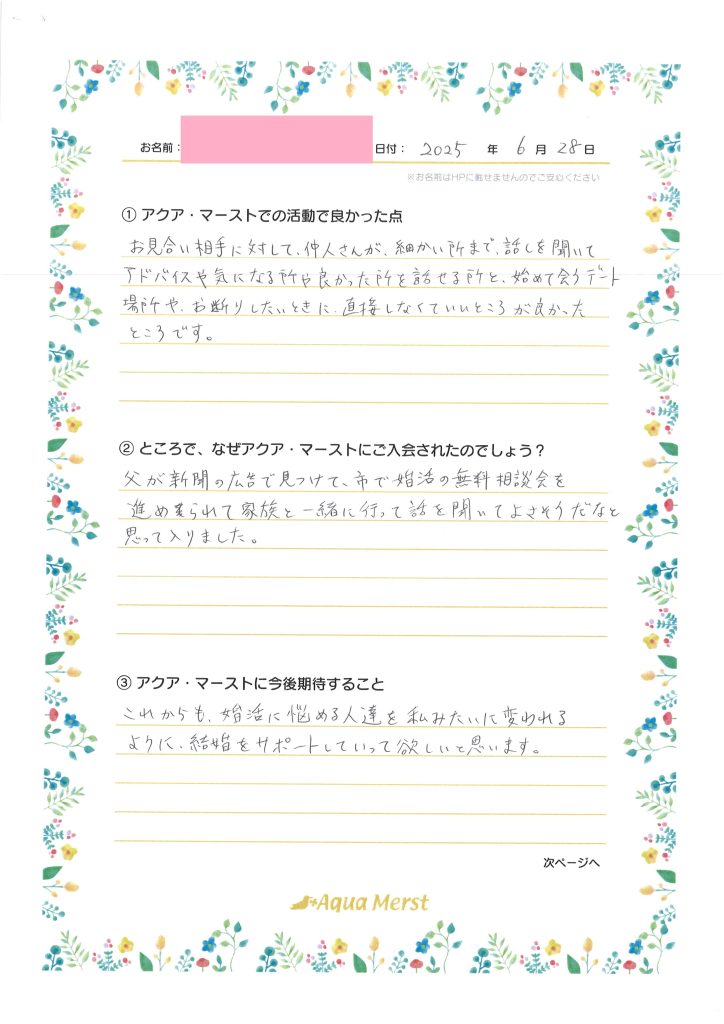 お名前： 日付： 2025 年 6 月 28 日
※お名前はHPに載せませんのでご安心ください
① アクア・マーストでの活動で良かった点
お見合い相手に対して、仲人さんが、細かい所まで、話しを聞いて
アドバイスや気になる所や良かった所を話せる所と、始めて会うデート
場所や、お断りしたいときに、直接しなくていいところが良かった
ところです。
② ところで、なぜアクア・マーストにご入会されたのでしょう？
父が新聞の広告で見つけて、市で婚活の無料相談会を
進められて家族と一緒に行って話を聞いてよさそうだなと
思って入りました。
③ アクア・マーストに今後期待すること
これからも、婚活に悩める人達を私みたいに変われる
ように、結婚をサポートしていって欲しいと思います。
次ページへ
Aqua Merst